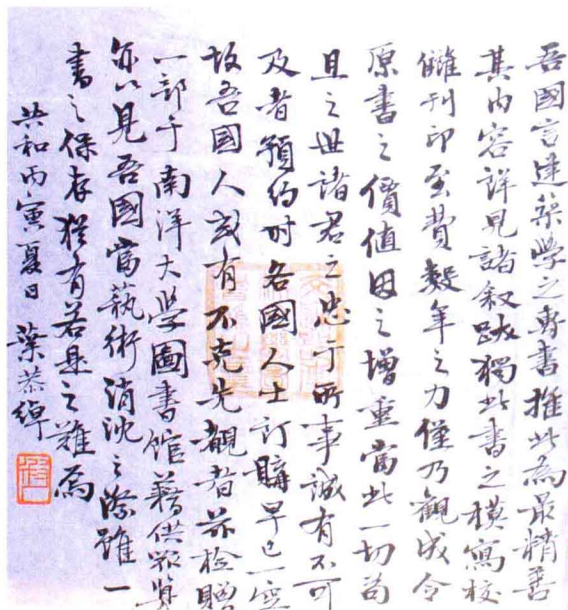 吾國言建築學之專書推此為最精善
其內容詳見諸叙跋獨此書之模寫校
讎刊印至費數年之力僅乃觀成令
原書之價值因之增重當此一切苟
且之世諸君之忠于所事誠有不可
及者預約時各國人士訂購早已一空
故吾國人或有不克先覩者茲檢贈
一部于南洋大學圖書館藉供眾覽
亦以見吾國當藝術消沈之際雖一
書之保存猶有若是之難焉
共和丙寅夏日 葉恭綽